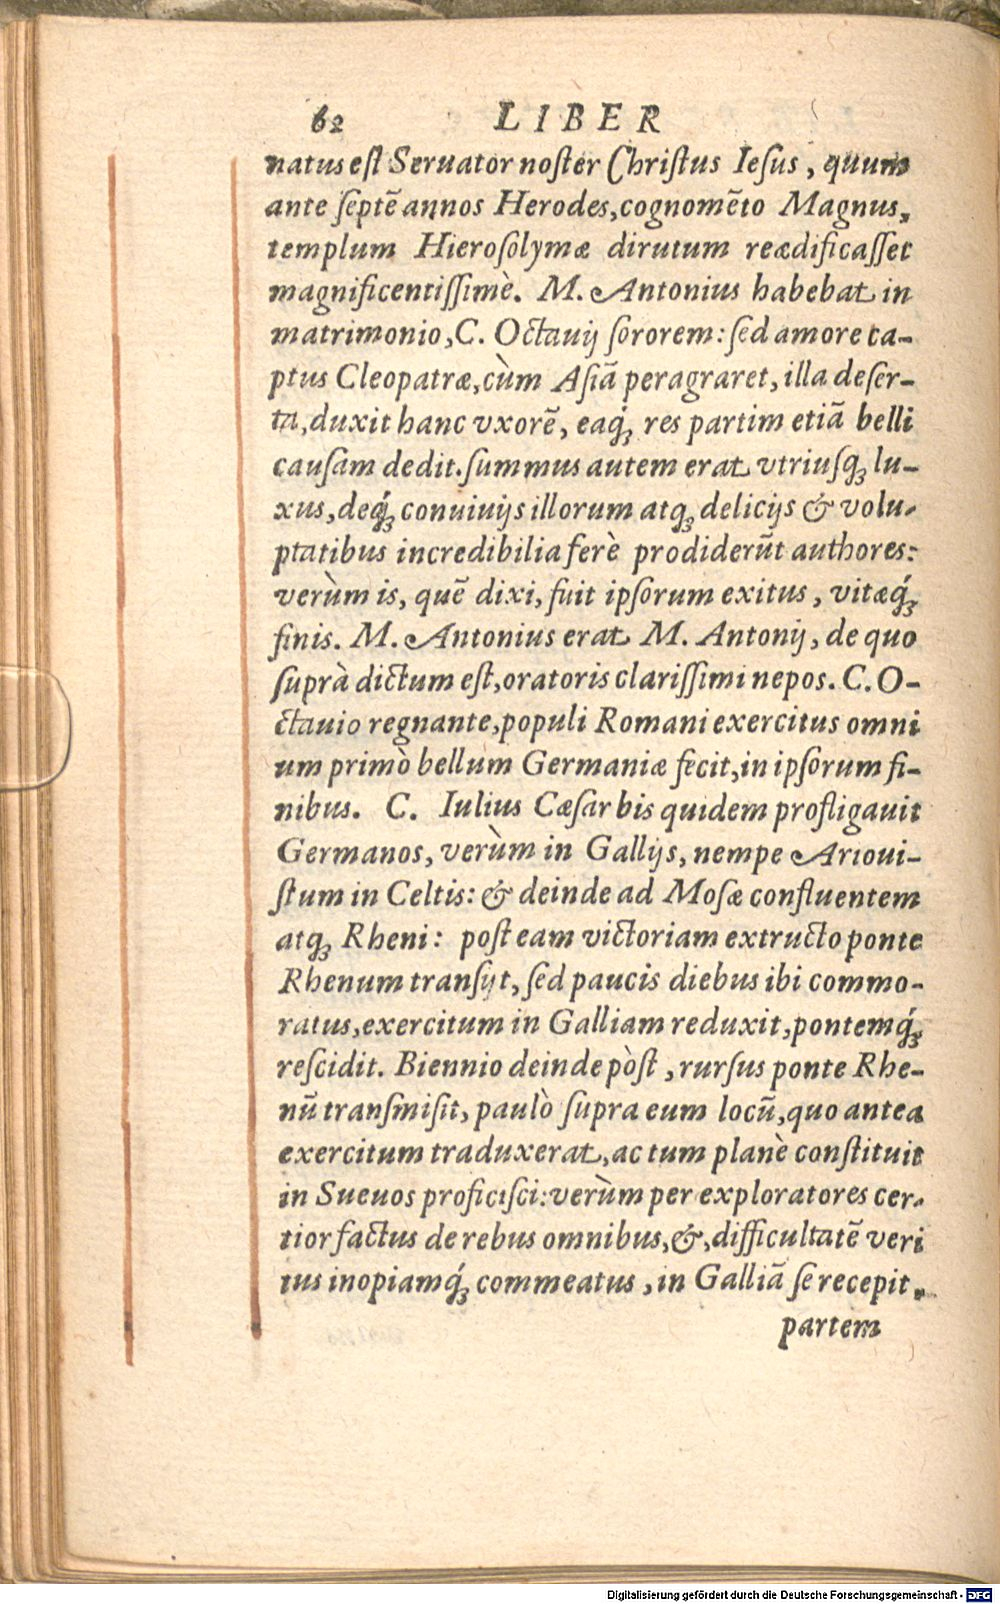 62 LIBER
natus est Seruator noster Christus Iesus, quum
ante septẽ annos Herodes, cognomẽto Magnus,
templum Hierosolymæ dirutum reædificasset
magnificentissimè. M. Antonius habebat in
matrimonio, C. Octauij sororem: sed amore ca-
ptus Cleopatræ, cùm Asiã peragraret, illa deser-
ta, duxit hanc vxorẽ, eaq́; res partim etiã belli
causam dedit. summus autem erat vtriusq; lu-
xus, deq́; conuiuijs illorum atq; delicijs & volu-
ptatibus incredibilia ferè prodiderũt authores:
verùm is, quẽ dixi, fuit ipsorum exitus, vitæq́;
finis. M. Antonius erat M. Antonij, de quo
suprà dictum est, oratoris clarissimi nepos. C. O-
ctauio regnante, populi Romani exercitus omni
um primò bellum Germaniæ fecit, in ipsorum fi-
nibus. C. Iulius Cæsar bis quidem profligauit
Germanos, verùm in Gallijs, nempe Arioui-
stum in Celtis: & deinde ad Mosæ confluentem
atq; Rheni: post eam victoriam extructo ponte
Rhenum transijt, sed paucis diebus ibi commo-
ratus, exercitum in Galliam reduxit, pontemq́;
rescidit. Biennio deinde pòst, rursus ponte Rhe-
nũ transmisit, paulò supra eum locũ, quo antea
exercitum traduxerat, ac tum planè constituit
in Sueuos proficisci: verùm per exploratores cer-
tior factus de rebus omnibus, &, difficultatẽ veri
tus inopiamq́; commeatus, in Galliã se recepit.
partem
Digitalisierung gefördert durch die Deutsche Forschungsgemeinschaft - DFG